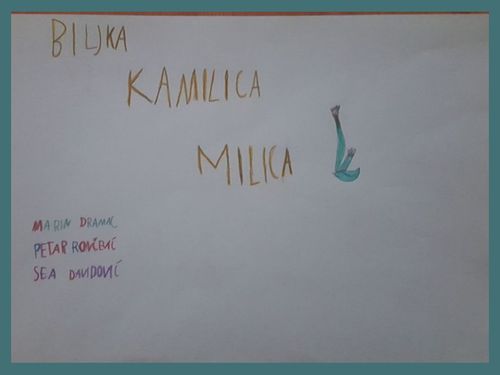 BILJKA
KAMILICA
MILICA
MARIN DRAMAC
PETAR RONČEVIĆ
SEA DAVIDOVIĆ